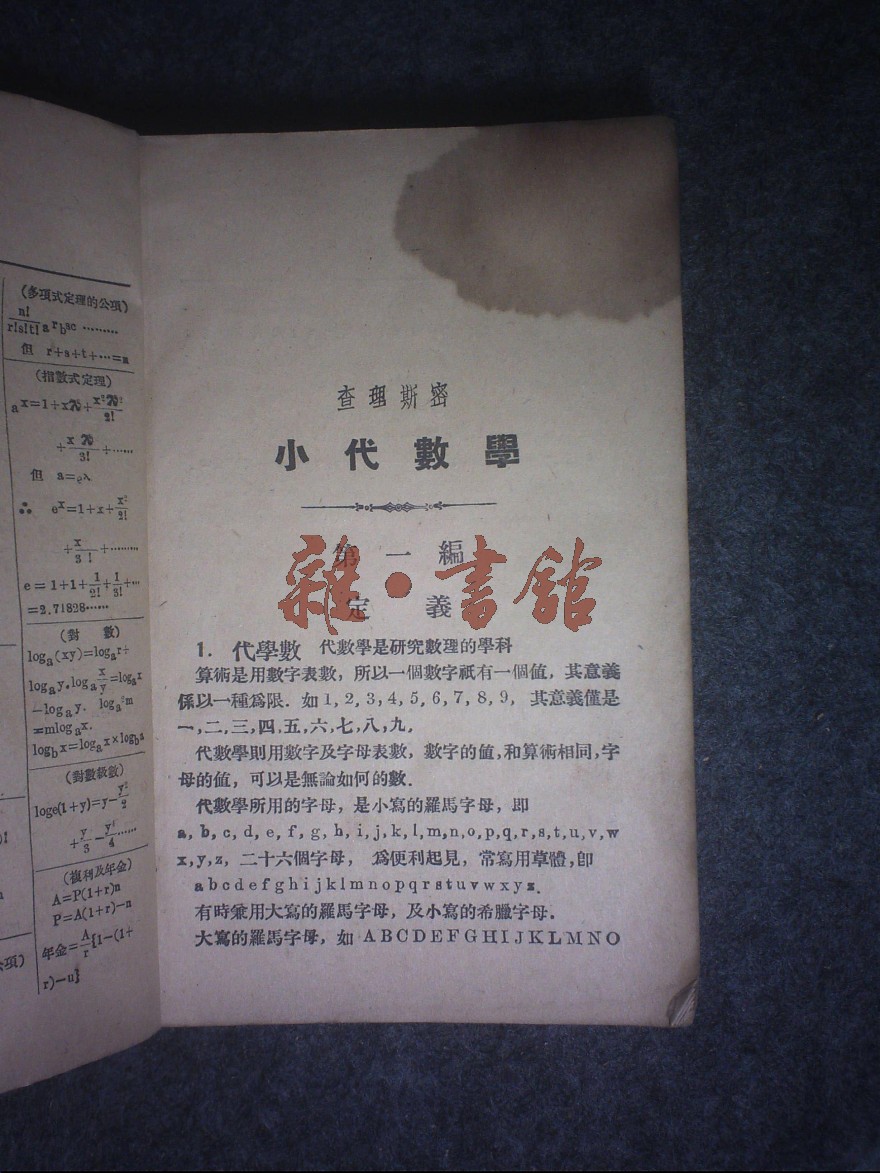 (多項式定理的公項)
n!
r!s!t! a r b s c ………
但 r+s+t+…=n
(指數式定理)
a x=1+xλ+x²λ²
2!
+x λ
3! +……
但 a=eλ
∴ eˣ=1+x+x²
2!
+x
3! +………
e=1+1+1/2!+1/3!+…
=2.71828……
(對 數)
(對數級數)
loge(1+y)=y-y²
2
+y
3-y⁴
4……
(複利及年金)
A=P(1+r)n
P=A(1+r)-n
年金=A
r{1-(1+
r)-n}
公項)
查理斯密
小代數學
第一編
定義
雜·書館
1. 代學數 代數學是研究數理的學科
算術是用數字表數，所以一個數字祇有一個值，其意義
係以一種爲限．如1,2,3,4,5,6,7,8,9，其意義僅是
一,二,三,四,五,六,七,八,九．
代數學則用數字及字母表數，數字的値,和算術相同,字
母的值，可以是無論如何的數．
代數學所用的字母，是小寫的羅馬字母，即
a,b,c,d,e,f,g,h,i,j,k,l,m,n,o,p,q,r,s,t,u,v,w
x,y,z，二十六個字母，爲便利起見，常寫用草體,卽
abcdefghijklmnopqrstuvwxyz．
有時兼用大寫的羅馬字母，及小寫的希臘字母．
大寫的羅馬字母，如ABCDEFGHIJKLMNO